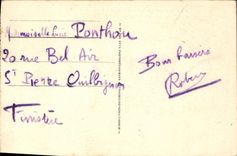 Mademoiselle Ponthou
20 rue Bel Air
St Pierre Quilbignon
Finistère
Bons baisers